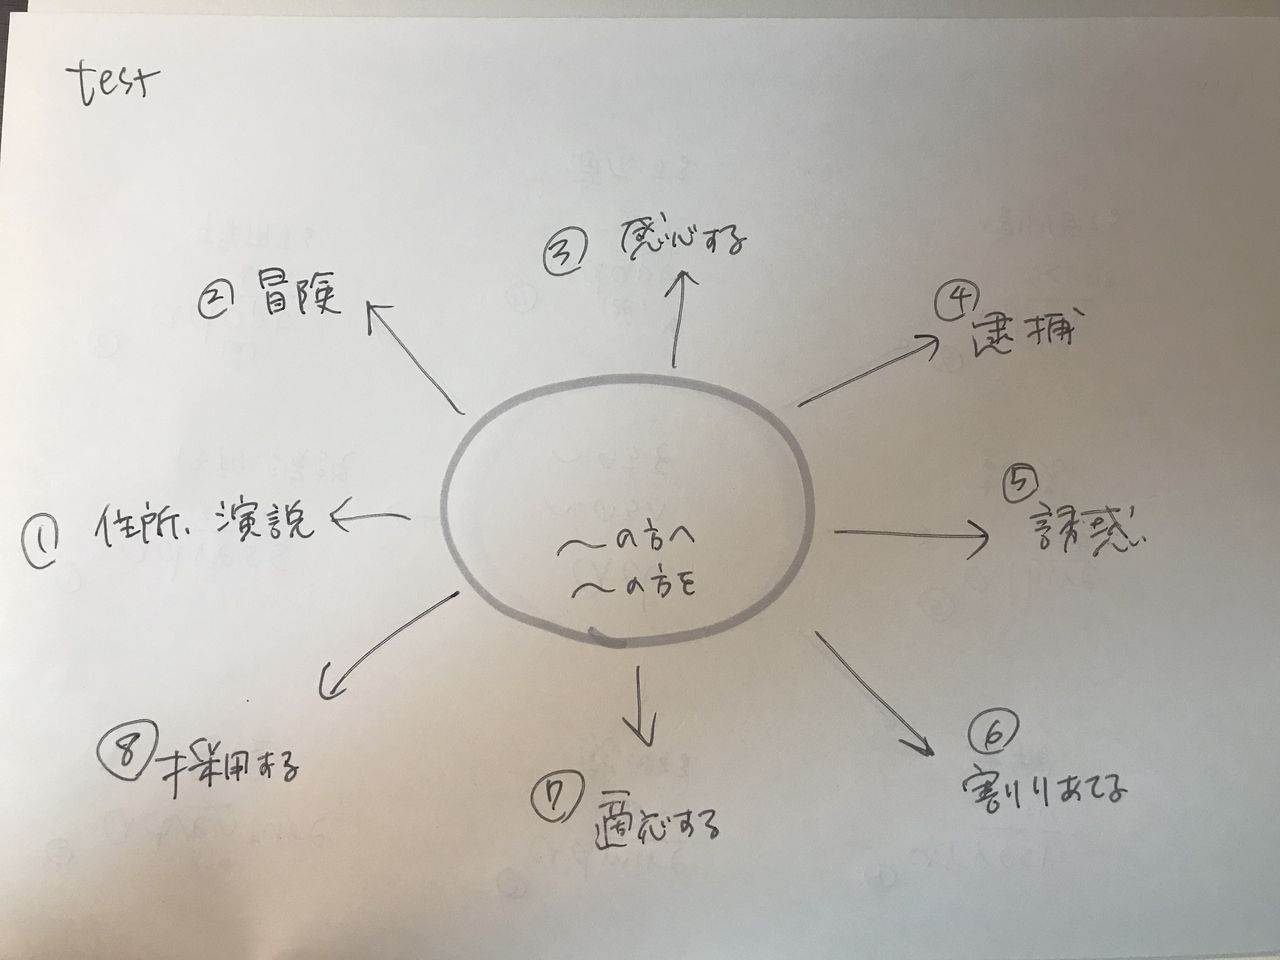 test
③ 感心する
② 冒険
④
逮捕
⑤
誘惑
① 住所、演説
〜の方へ
〜の方を
⑥
割りあてる
⑧ 採用する
⑦ 適応する